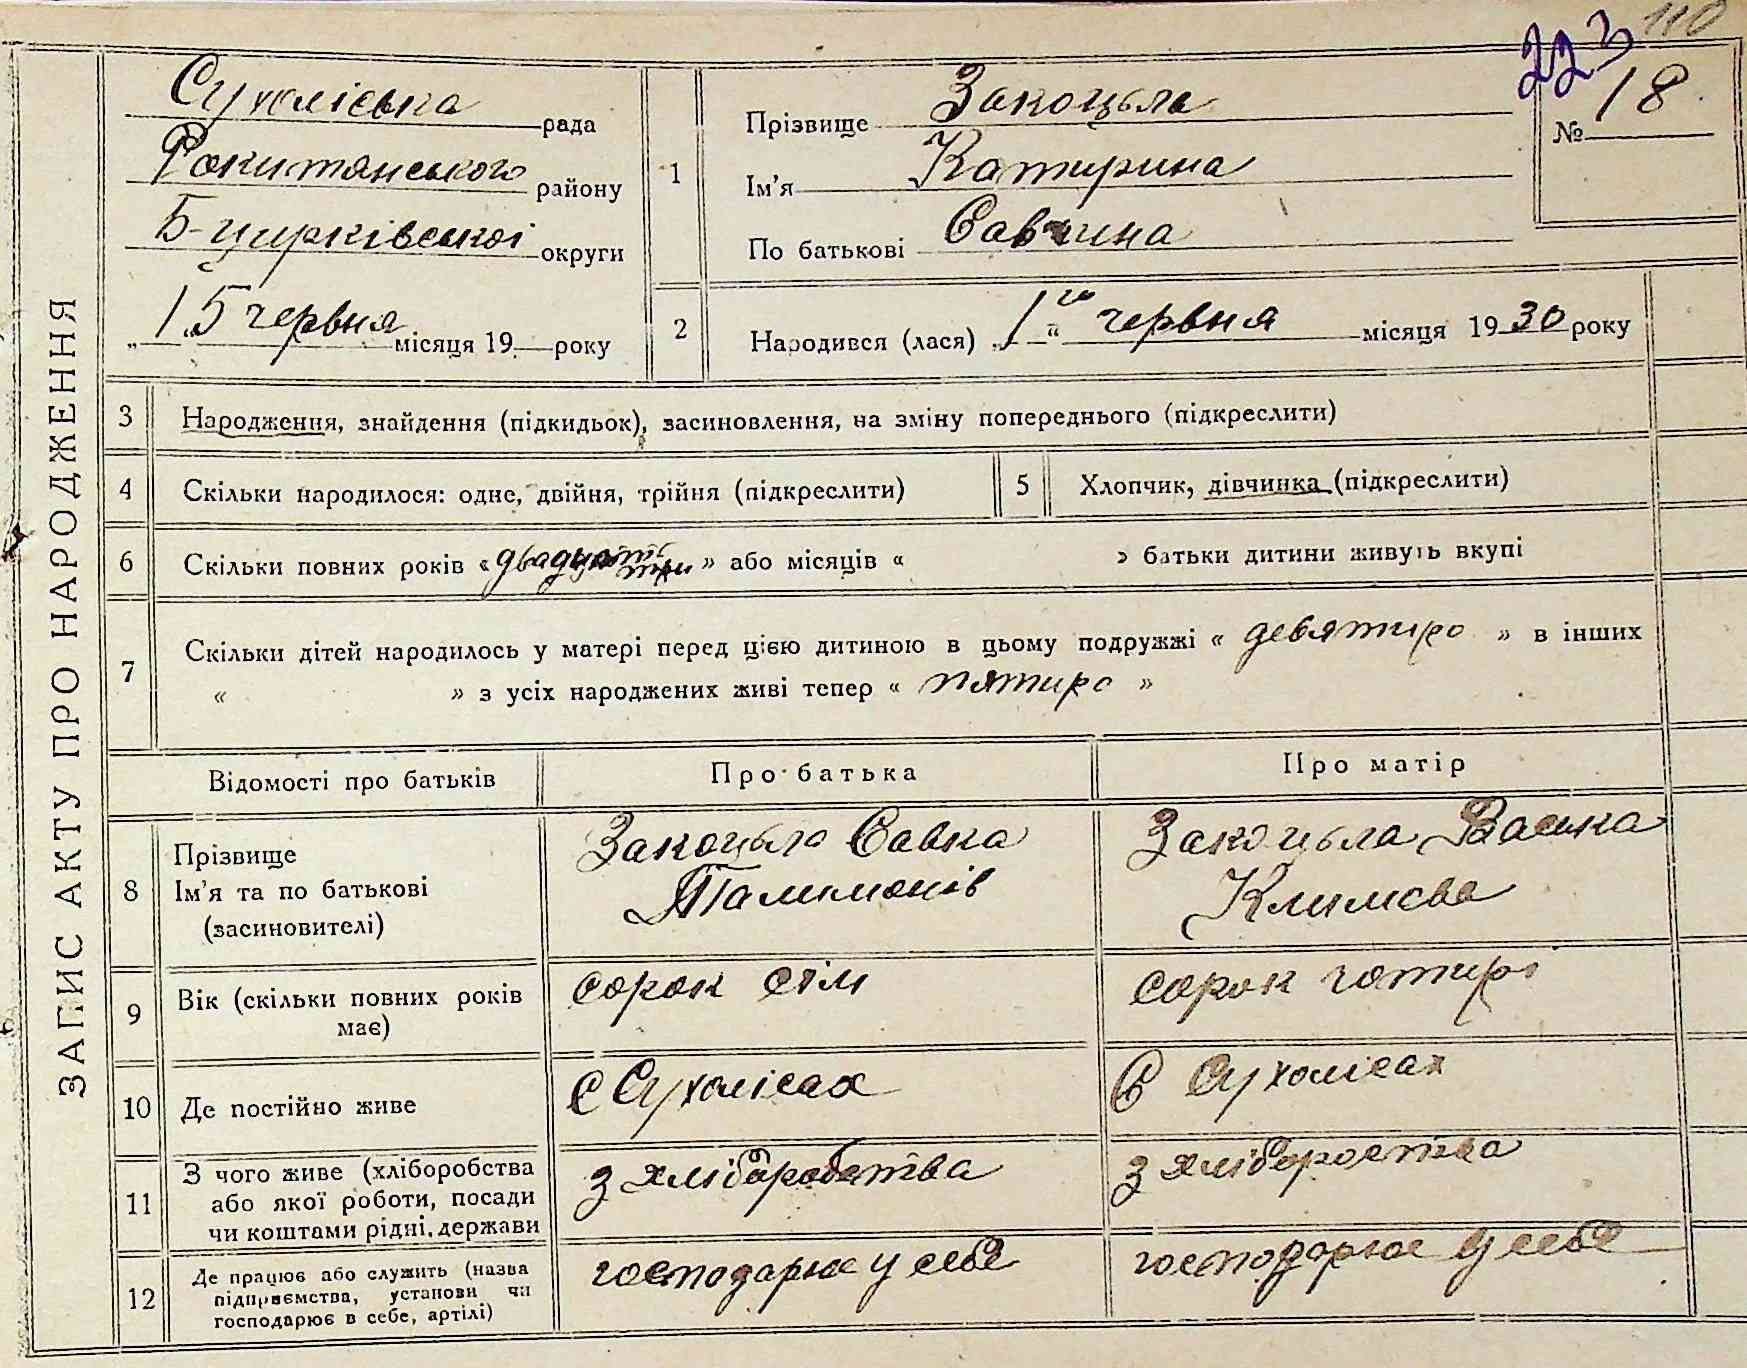 110
223
Сухоліська рада
Рокитянського району
Б-церківської округи
„15“ червня місяця 19 року
1
Прізвище Закоцьла
Ім'я Катирина
По батькові Савчина
№ 18
2
Народився (лася) „1го“ червня місяця 1930 року
ЗАПИС АКТУ ПРО НАРОДЖЕННЯ
3 Народження, знайдення (підкидьок), засиновлення, на зміну попереднього (підкреслити)
4 Скільки народилося: одне, двійня, трійня (підкреслити)
5 Хлопчик, дівчинка (підкреслити)
6 Скільки повних років «двадцять три» або місяців « » батьки дитини живуть вкупі
7 Скільки дітей народилось у матері перед цією дитиною в цьому подружжі « девятиро » в інших
« » з усіх народжених живі тепер « пятиро »
Відомості про батьків
Про батька
Про матір
8 Прізвище
Ім'я та по батькові
(засиновителі)
Закоцьла Савка
Палимонів
Закоцьла
Климова
9 Вік (скільки повних років
має)
сорок сім
сорок чотирі
10 Де постійно живе
С Сухолісах
В Сухолісах
11 З чого живе (хліборобства
або якої роботи, посади
чи коштами рідні, держави
з хліборобства
з хлібороства
12 Де працює або служить (назва
підприємства, установи чи
господарює в себе, артілі)
господарює у себе
господорює у себе